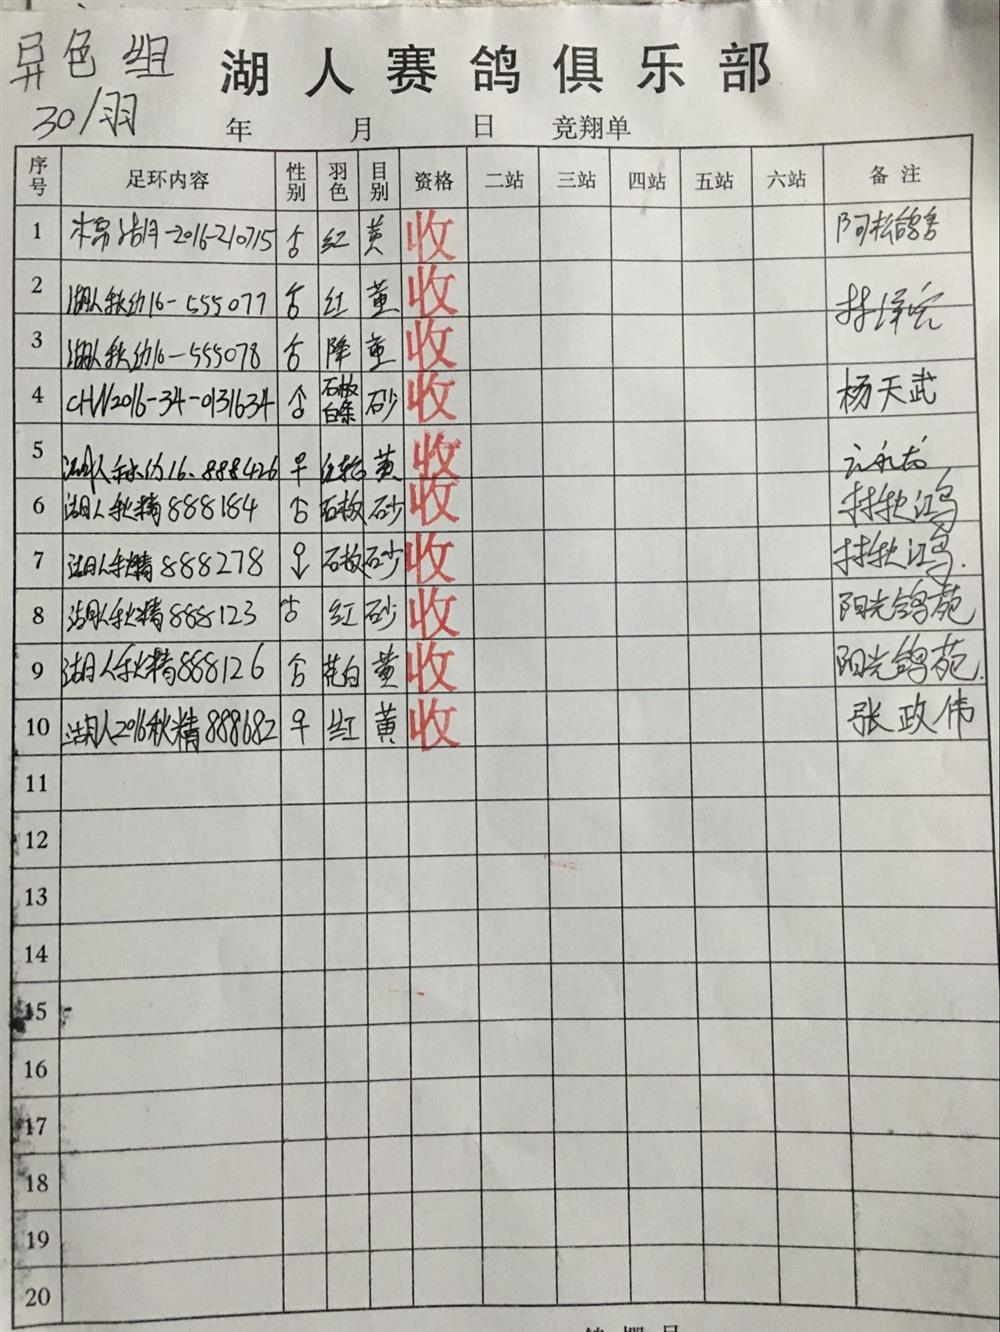 异色组
湖人赛鸽俱乐部
30/羽
年 月 日 竞翔单
序号 足环内容 性别 羽色 目别 资格 二站 三站 四站 五站 六站 备注
1 -2016-210715 ♂ 红 黄 收
2 湖人秋幼16-555077 ♂ 红 黄 收
3 湖人秋幼16-555078 ♂ 降 黄 收
4 CHN2016-34-0131634 ♂ 石板白条 砂 收 杨天武
5 湖人秋幼16.888426 ♀ 红轮 黄 收
6 湖人秋精888184 ♂ 石板 砂 收 林秋鸿
7 湖人秋精888278 ♀ 石板 砂 收 林秋鸿
8 湖人秋精888123 ♂ 红 砂 收 阳光鸽苑
9 湖人秋精888126 ♂ 花白 黄 收 阳光鸽苑
10 湖人2016秋精888682 ♀ 红 黄 收 张政伟
11
12
13
14
15
16
17
18
19
20